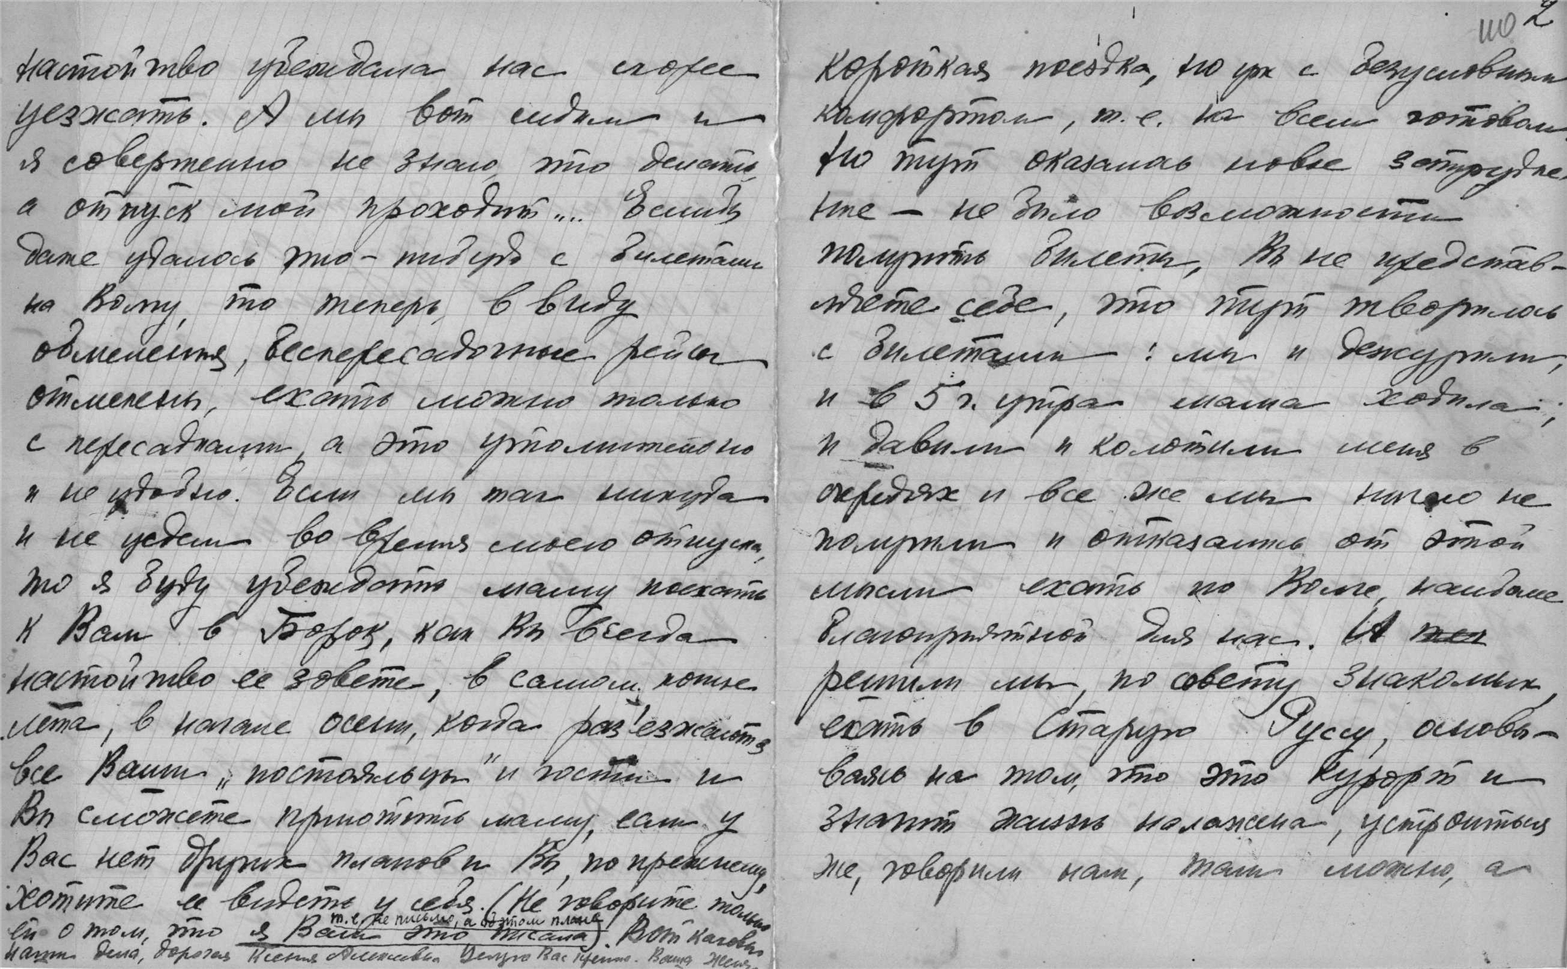 настойчиво убеждала нас скорее
уезжать. А мы вот сидим и
я совершенно не знаю, что делать,
а отпуск мой проходит.... Если бы
даже удалось что-нибудь с билетами
на Волгу, то теперь, в виду
обмеления, беспересадочные рейсы
отменены, ехать можно только
с пересадками, а это утомительно
и не удобно. Если мы так никуда
и не уедем во время моего отпуска,
то я буду убеждать маму поехать
к Вам в Борок, как Вы всегда
настойчиво ее зовете, в самом конце
лета, в начале осени, когда раз'езжаются
все Ваши „постояльцы" и гости и
Вы сможете приютить маму, если у
Вас нет других планов и Вы, по прежнему,
хотите ее видеть у себя. (Не говорите только
т.е. не письме, а об этом плане
ей о том, что я Вам это писала). Вот каковы
наши дела, дорогая Ксения Алексеевна. Целую Вас крепко. Ваша Женя
110 2
короткая поездка, но уж с безусловным
комфортом, т.е. на всем готовом.
Но тут оказалось новое затрудне-
ние – не было возможности
получить билеты, Вы не представ-
ляете себе, что тут творилось
с билетами: мы и дежурили,
и в 5 ч. утра мама ходила,
и давили и колотили меня в
очередях и все же мы ничего не
получили и отказались от этой
мысли ехать по Волге, наиболее
благоприятной для нас. А
решили мы, по совету знакомых,
ехать в Старую Руссу, основы-
ваясь на том, что это курорт и
значит жизнь налажена, устроиться
же, говорили нам, там можно, а